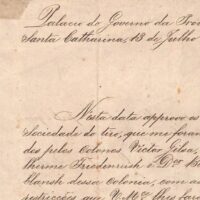 Palacio do Governo da Prov
Santa Catharina, 13 de Julho
Nesta data approvo os
Sociedade do tiro, que me foram
dos pelos Colonos Victor Gilsa,
lherme Friedenrish e Der
dessa Colonia, com as
que V. Mce lhes fará